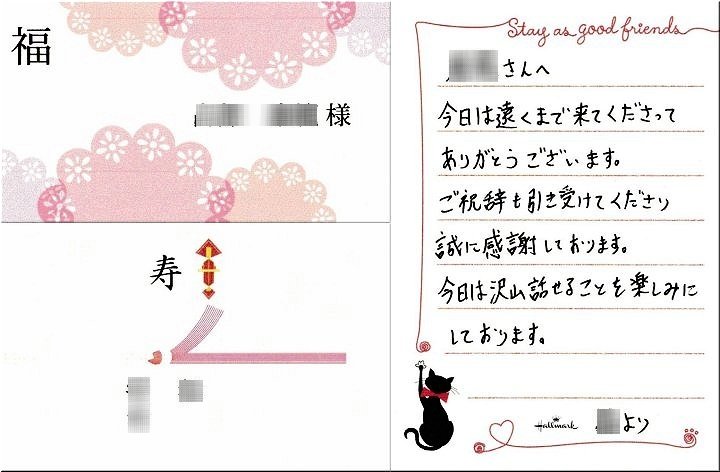 福
様
寿
Stay as good friends
さんへ
今日は遠くまで来てくださって
ありがとうございます。
ご祝辞も引き受けてくださり
誠に感謝しております。
今日は沢山話せることを楽しみに
しております。
Hallmark
より